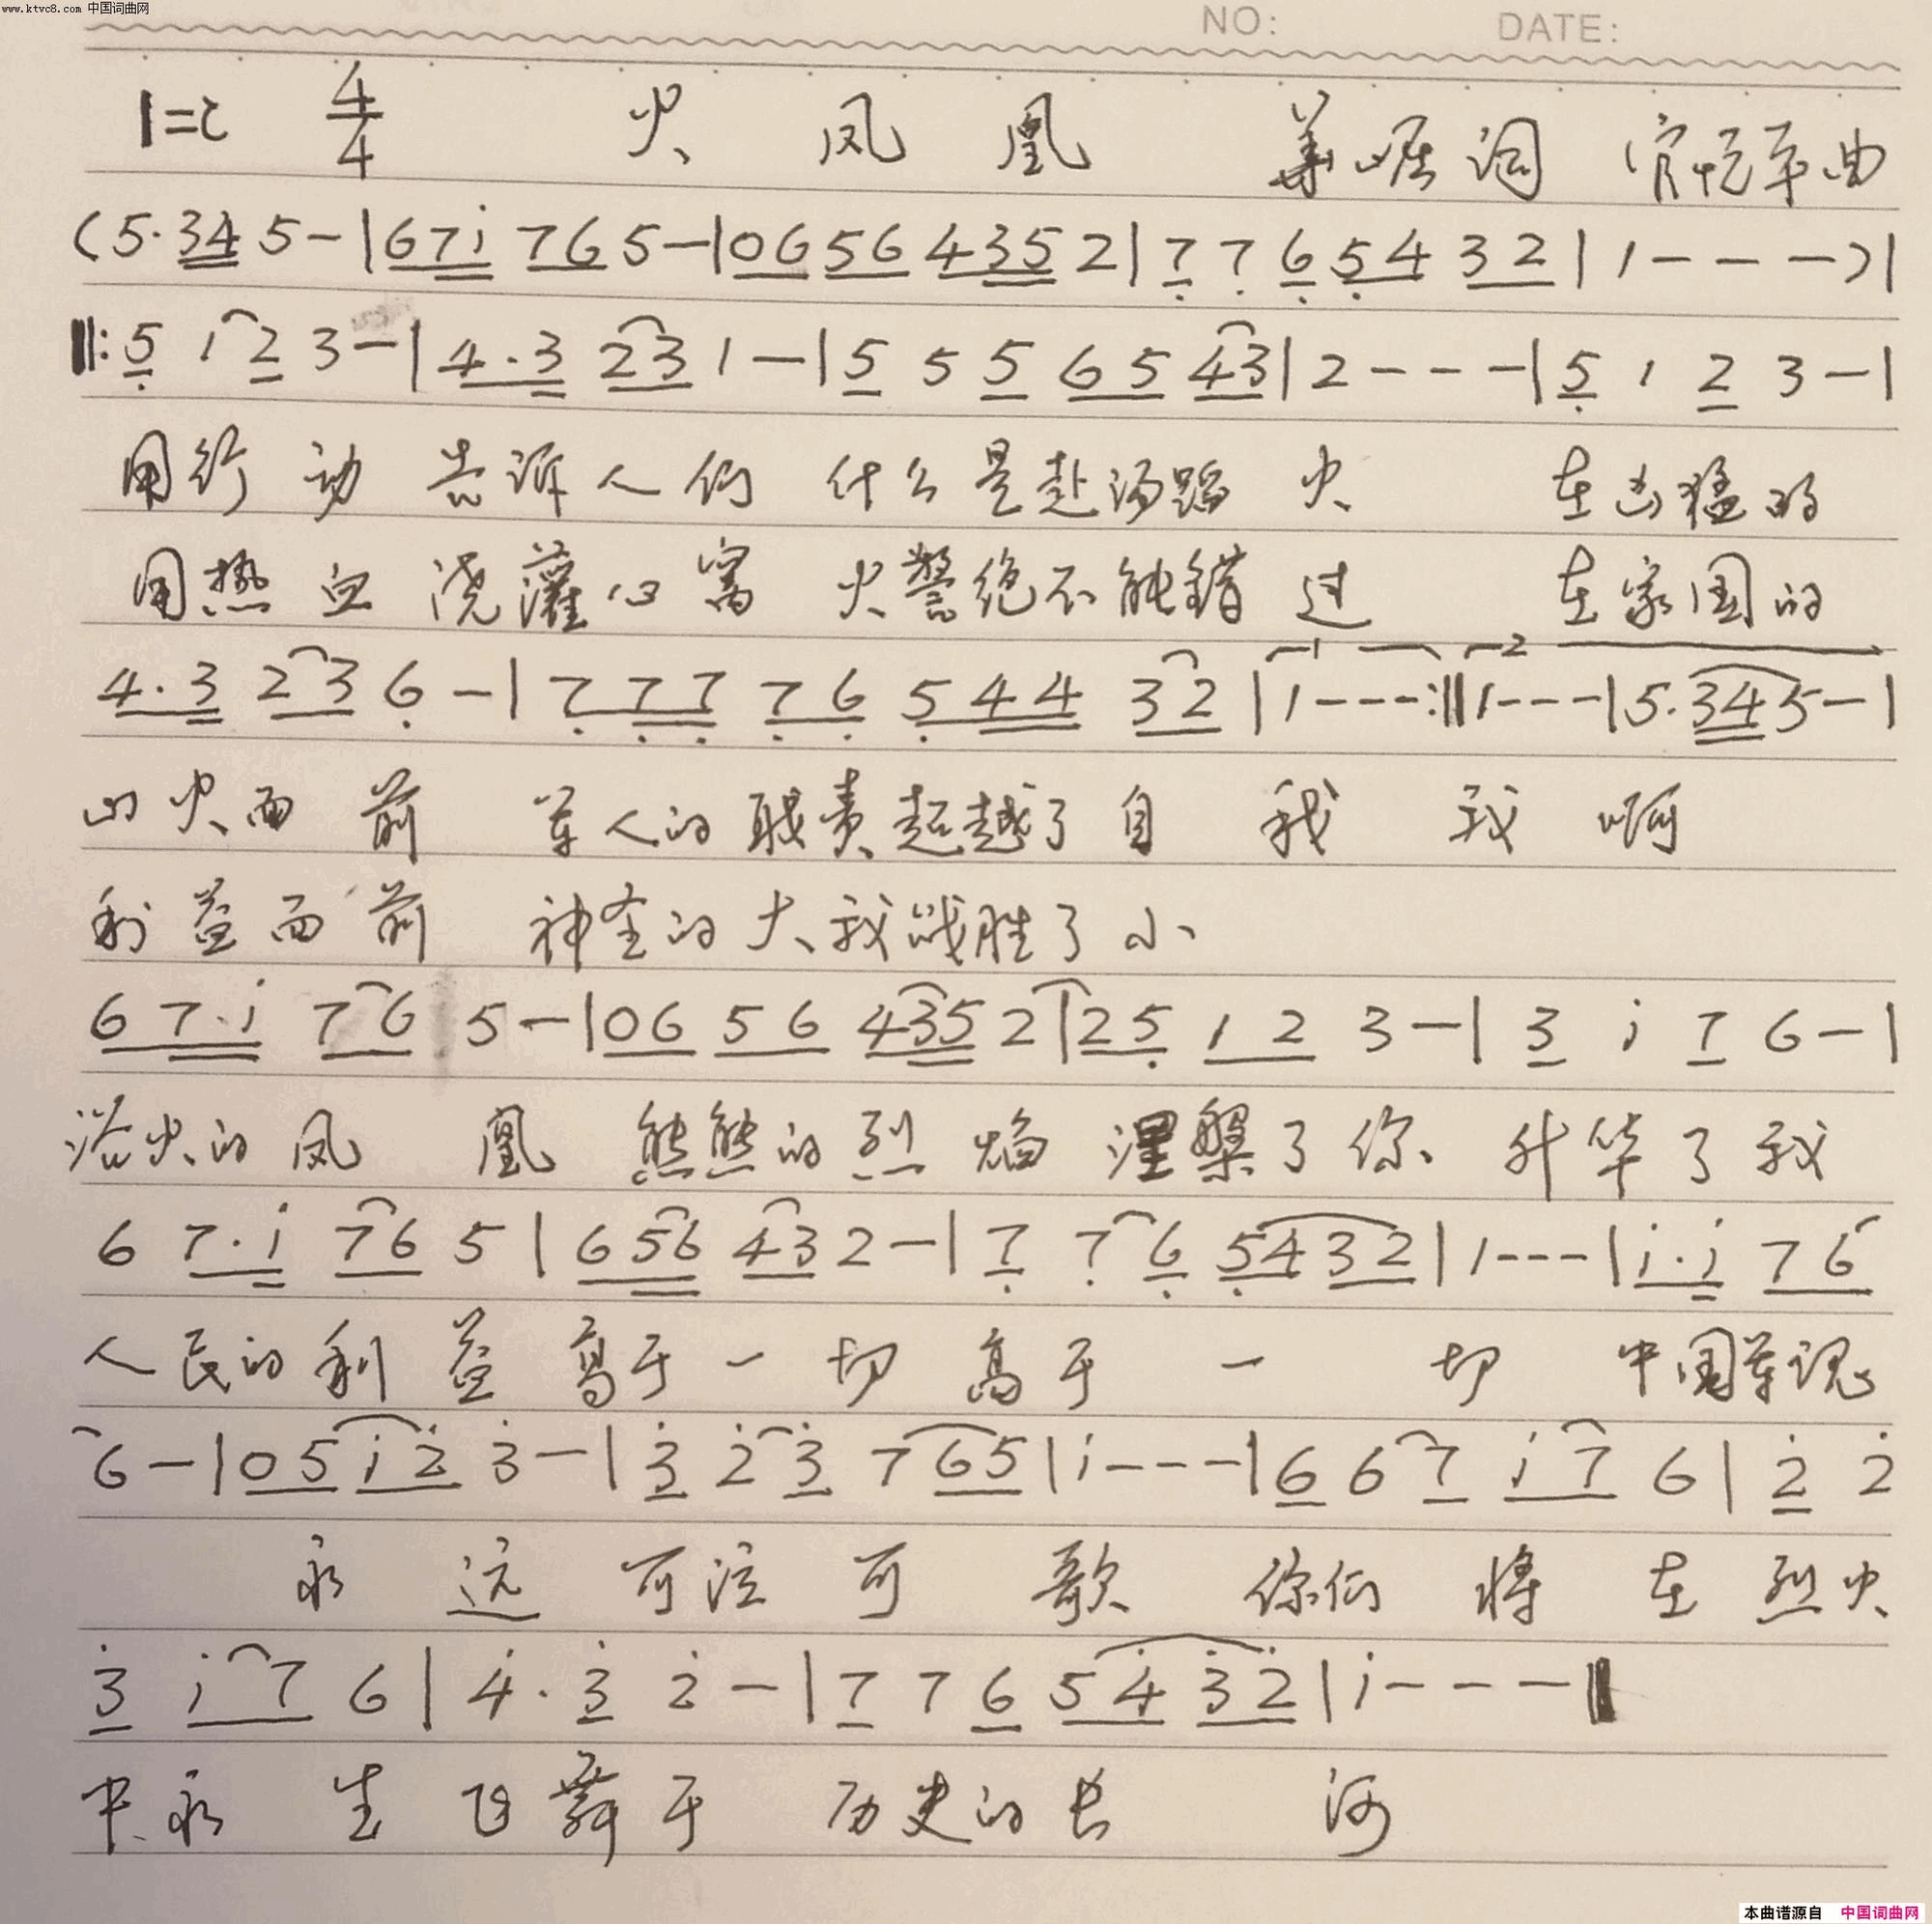 www.ktvc8.com 中国词曲网
NO: DATE:
1=C 4/4 火 凤 凰 词 曲
(5·34 5-|67i 765-|0656 4352|7 7 6 54 32|1---)|
‖:5 12 3-|4·3 23 1-|5 5 5 65 43|2---|5 1 2 3-|
用行 动 告诉人们 什么是赴汤蹈 火 在凶猛的
用热 血 浇灌心窝 火警绝不能错 过 在家国的
4·3 23 6-|7 7 7 76 544 32|1---:‖1---|5·345-|
山火面 前 军人的职责超越了自 我 我 啊
利益面前 神圣的大我战胜了小
67·i 76 5-|06 56 435 2|25 12 3-|3 i 7 6-|
浴火的凤 凰 熊熊的烈 焰 涅槃了你 升华了我
6 7·i 76 5|656 43 2-|7 7 6 5432|1---|i·i 76
人民的利 益 高于一 切 高于 一 切 中国军魂
6-|05 i2 3-|3 2 3 765|i---|6 6 7 i7 6|2 2
永 远 可泣 可 歌 你们 将 在 烈火
3 i7 6|4·3 2-|7 7 6 54 32|i---‖
中永 生 飞舞于 历史的长 河
本曲谱源自 中国词曲网